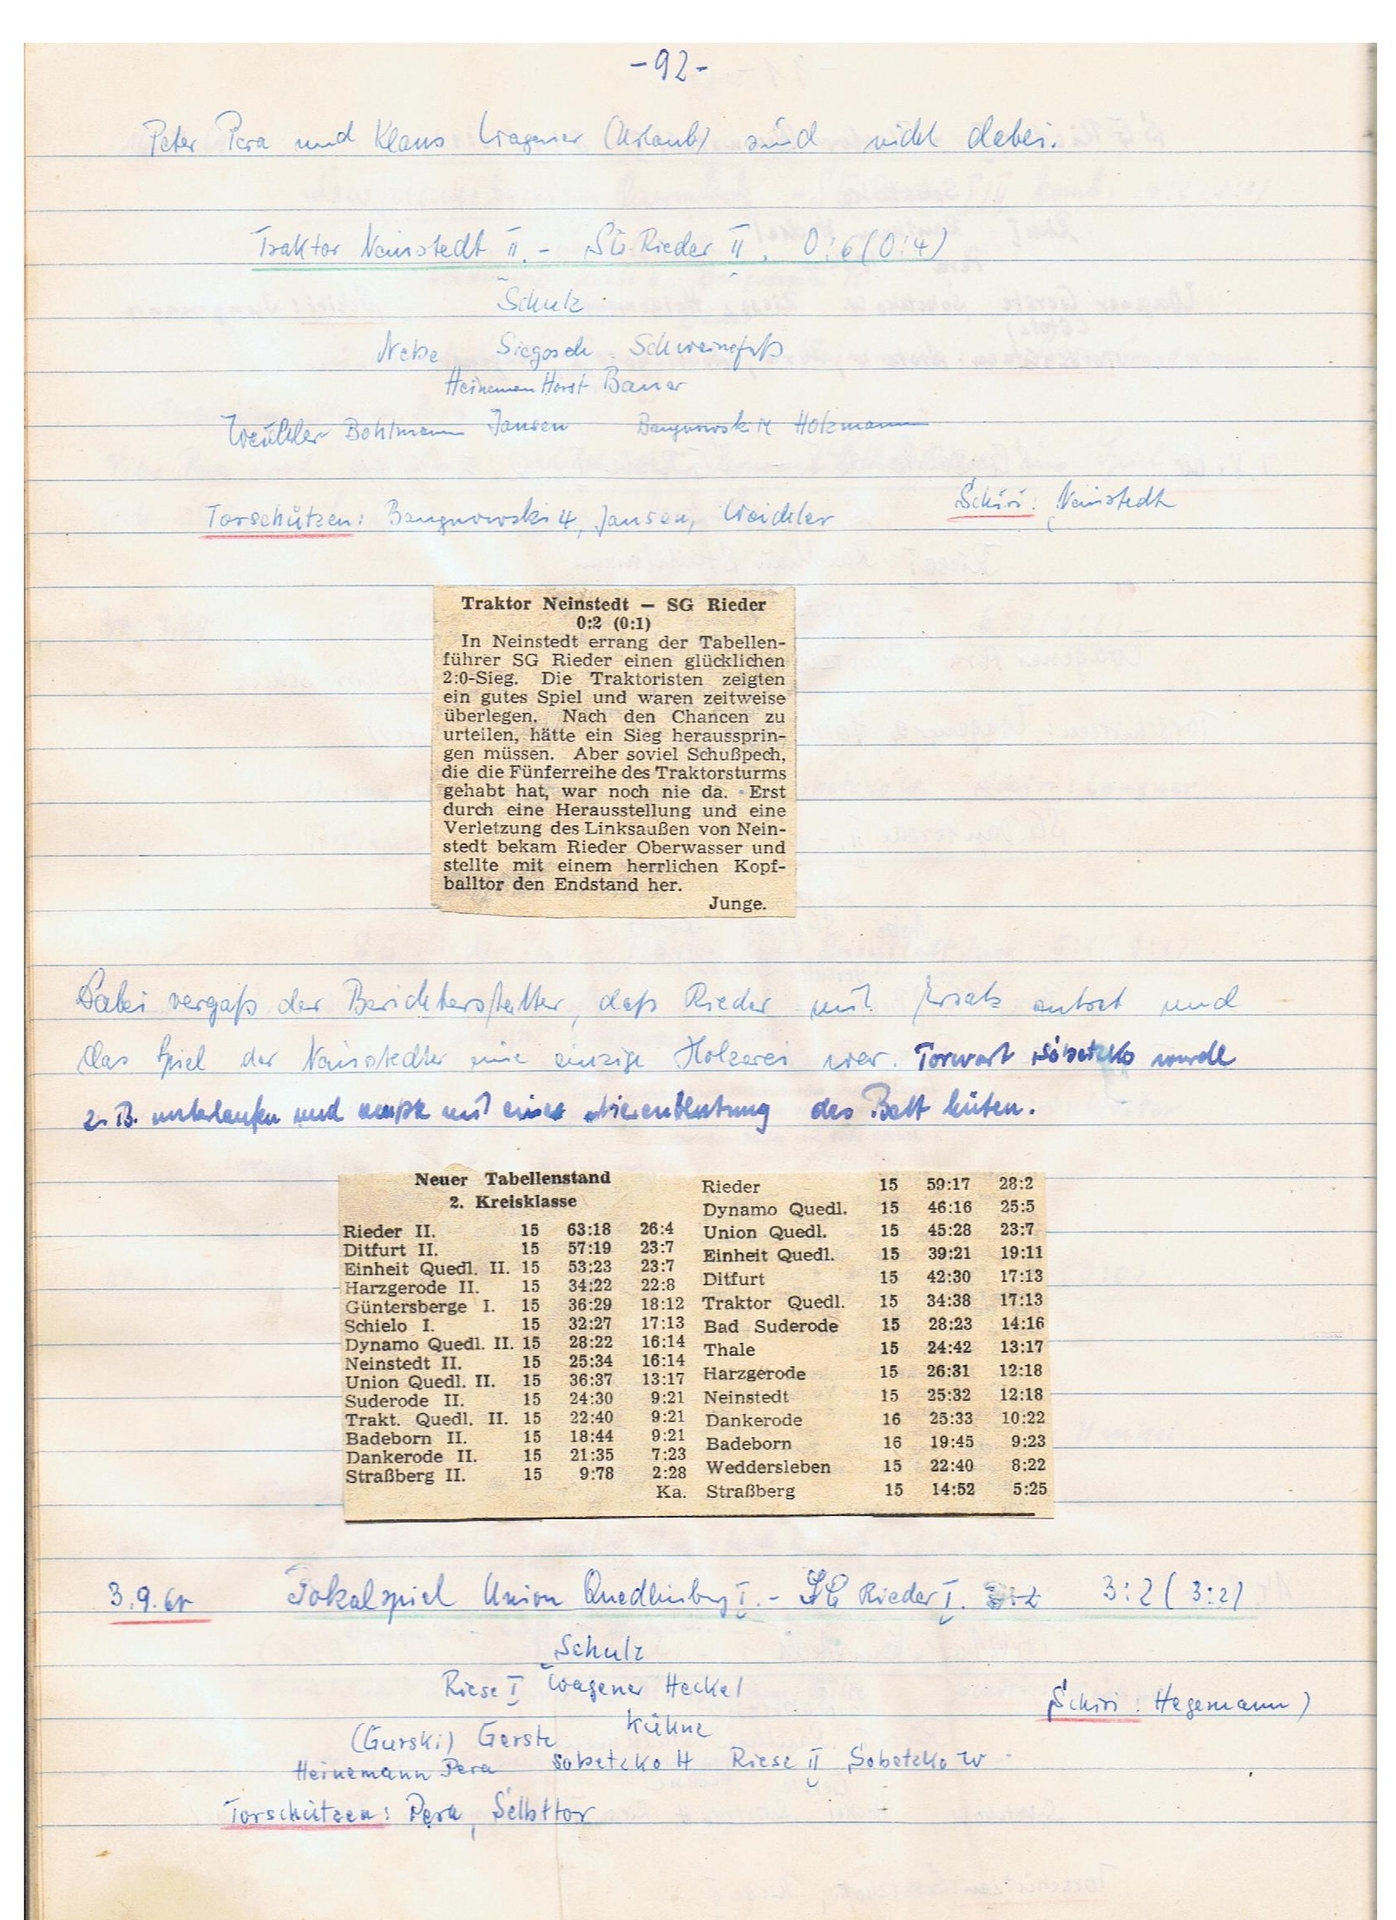 -92-
Peter Pera und Klaus Wagener (Urlaub) sind nicht dabei.
Traktor Neinstedt II. - SG Rieder II. 0:6 (0:4)
Schulz
Nebe Siegosch Schweinefuß
Heinemann Horst Bauer
Weichler Bohlmann Jansen Bangnowski Holzmann
Torschützen: Bangnowski 4, Jansen, Weichler
Schiri: Neinstedt
Traktor Neinstedt — SG Rieder
0:2 (0:1)
In Neinstedt errang der Tabellen-
führer SG Rieder einen glücklichen
2:0-Sieg. Die Traktoristen zeigten
ein gutes Spiel und waren zeitweise
überlegen. Nach den Chancen zu
urteilen, hätte ein Sieg herausspringen-
gen müssen. Aber soviel Schußpech,
die die Fünferreihe des Traktorsturms
gehabt hat, war noch nie da. Erst
durch eine Herausstellung und eine
Verletzung des Linksaußen von Nein-
stedt bekam Rieder Oberwasser und
stellte mit einem herrlichen Kopf-
balltor den Endstand her.
Junge.
Dabei vergaß der Berichterstatter, daß Rieder mit Ersatz antrat und
das Spiel der Neinstedter eine einzige Holzerei war. Torwart Sobetzko wurde
z. B. unterlaufen und mußte mit einer Nierenblutung das Bett hüten.
Neuer Tabellenstand
2. Kreisklasse
Rieder II. 15 63:18 26:4
Ditfurt II. 15 57:19 23:7
Einheit Quedl. II. 15 53:23 23:7
Harzgerode II. 15 34:22 22:8
Güntersberge I. 15 36:29 18:12
Schielo I. 15 32:27 17:13
Dynamo Quedl. II. 15 28:22 16:14
Neinstedt II. 15 25:34 16:14
Union Quedl. II. 15 36:37 13:17
Suderode II. 15 24:30 9:21
Trakt. Quedl. II. 15 22:40 9:21
Badeborn II. 15 18:44 9:21
Dankerode II. 15 21:35 7:23
Straßberg II. 15 9:78 2:28
Ka.
Rieder 15 59:17 28:2
Dynamo Quedl. 15 46:16 25:5
Union Quedl. 15 45:28 23:7
Einheit Quedl. 15 39:21 19:11
Ditfurt 15 42:30 17:13
Traktor Quedl. 15 34:38 17:13
Bad Suderode 15 28:23 14:16
Thale 15 24:42 13:17
Harzgerode 15 26:31 12:18
Neinstedt 15 25:32 12:18
Dankerode 16 25:33 10:22
Badeborn 16 19:45 9:23
Weddersleben 15 22:40 8:22
Straßberg 15 14:52 5:25
3.9.60 Pokalspiel Union Quedlinburg I. - SG Rieder I. 3:2 (3:2)
Schulz
Riese I Wagener Heckel
Schiri: Hegemann)
(Gurski) Gerste Kühne
Heinemann Pera Sobetzko H Riese II Sobetzko W
Torschützen: Pera, Selbsttor